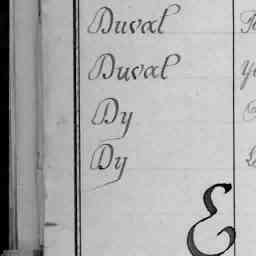 Duval
Duval
Dy
Dy
E